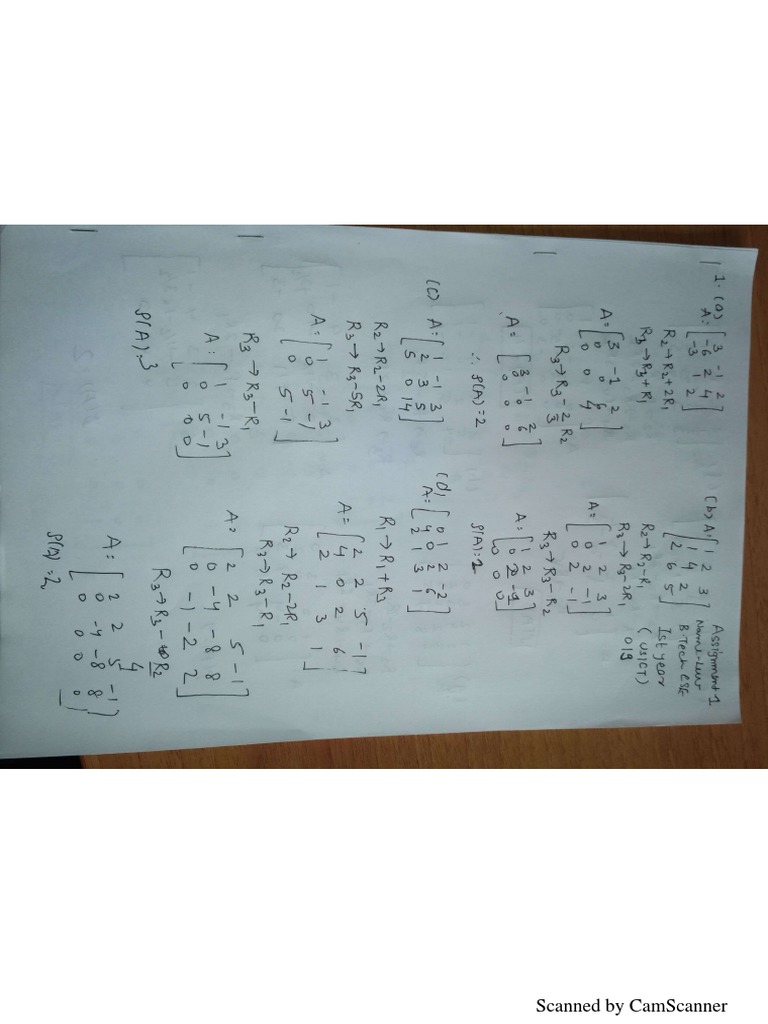 Assignment-1
B.Tech CSE
Ist year
(USICT)
019
1. (a)
A = [ 3 -1 2
-6 2 4
-3 1 2 ]
R2 → R2 + 2R1
R3 → R3 + R1
A = [ 3 -1 2
0 0 6
0 0 4 ]
R3 → R3 - 2/3 R2
A = [ 3 -1 2
0 0 6
0 0 0 ]
∴ ρ(A) = 2
(b) A = [ 1 2 3
1 4 2
2 6 5 ]
R2 → R2 - R1
R3 → R3 - 2R1
A = [ 1 2 3
0 2 -1
0 2 -1 ]
R3 → R3 - R2
A = [ 1 2 3
0 2 -1
0 0 0 ]
ρ(A) = 2
(c) A = [ 1 -1 3
2 3 5
5 0 14 ]
R2 → R2 - 2R1
R3 → R3 - 5R1
A = [ 1 -1 3
0 5 -1
0 5 -1 ]
R3 → R3 - R1
A = [ 1 -1 3
0 5 -1
0 0 0 ]
ρ(A) = 3
(d)
A = [ 0 1 2 -2
4 0 2 6
2 1 3 1 ]
R1 → R1 + R3
A = [ 2 2 5 -1
4 0 2 6
2 1 3 1 ]
R2 → R2 - 2R1
R3 → R3 - R1
A = [ 2 2 5 -1
0 -4 -8 8
0 -1 -2 2 ]
R3 → R3 - R2
4
A = [ 2 2 5 -1
0 -4 -8 8
0 0 0 0 ]
ρ(A) = 2
Scanned by CamScanner